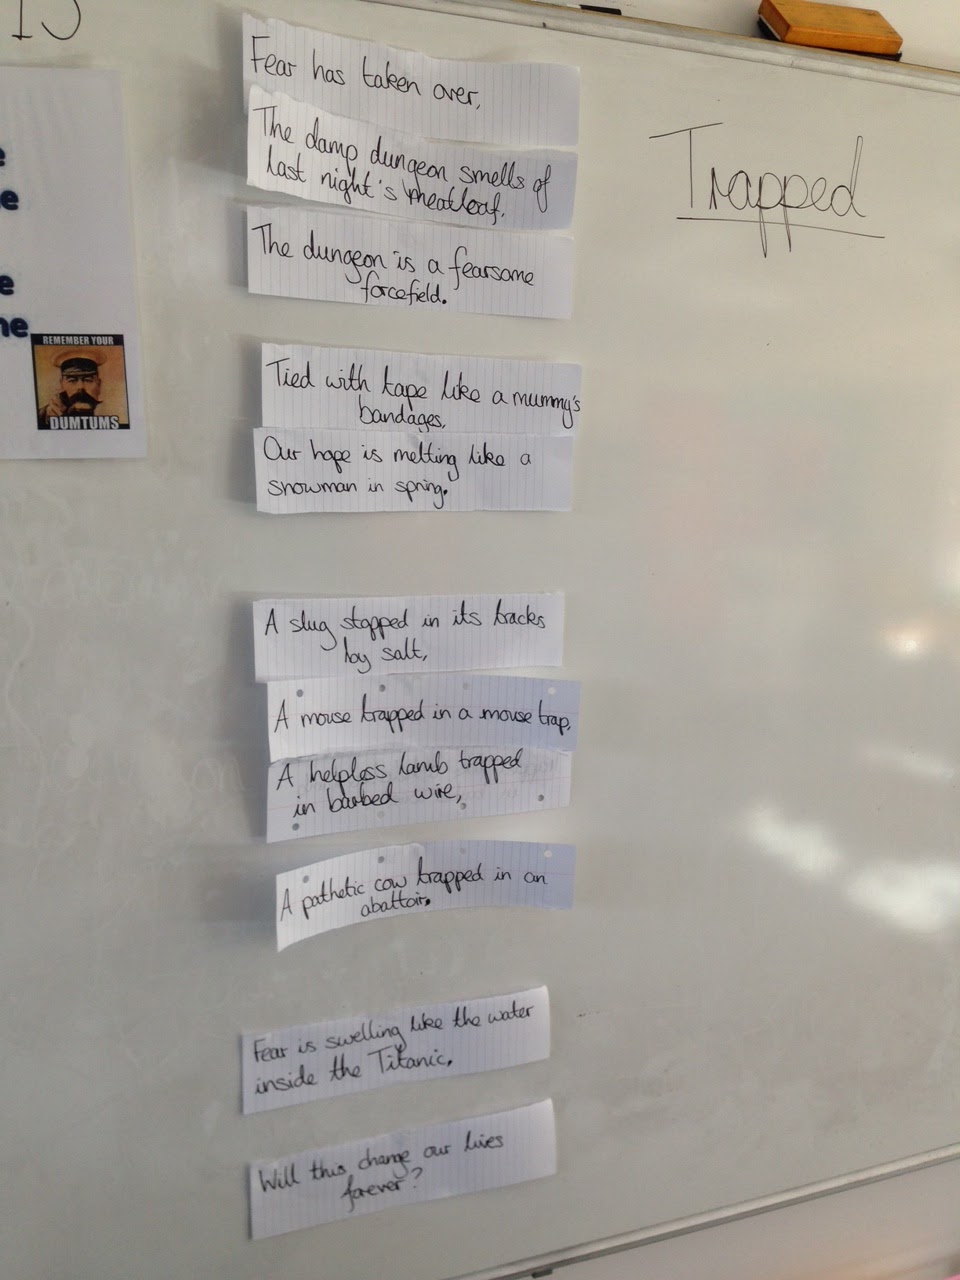 Fear has taken over,
The damp dungeon smells of
last night's meatloaf.
The dungeon is a fearsome
forcefield.
Tied with tape like a mummy's
bandages,
Our hope is melting like a
snowman in spring.
A slug stopped in its tracks
by salt,
A mouse trapped in a mouse trap,
A helpless lamb trapped
in barbed wire,
A pathetic cow trapped in an
abattoir.
Fear is swelling like the water
inside the Titanic.
Will this change our lives
forever?
Trapped
REMEMBER YOUR
DUMTUMS